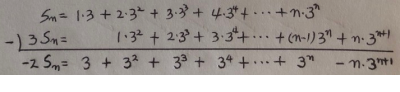 Sₙ = 1·3 + 2·3² + 3·3³ + 4·3⁴ + ··· + n·3ⁿ
-) 3Sₙ = 1·3² + 2·3³ + 3·3⁴ + ··· + (n-1)3ⁿ + n·3ⁿ⁺¹
-2Sₙ = 3 + 3² + 3³ + 3⁴ + ··· + 3ⁿ - n·3ⁿ⁺¹